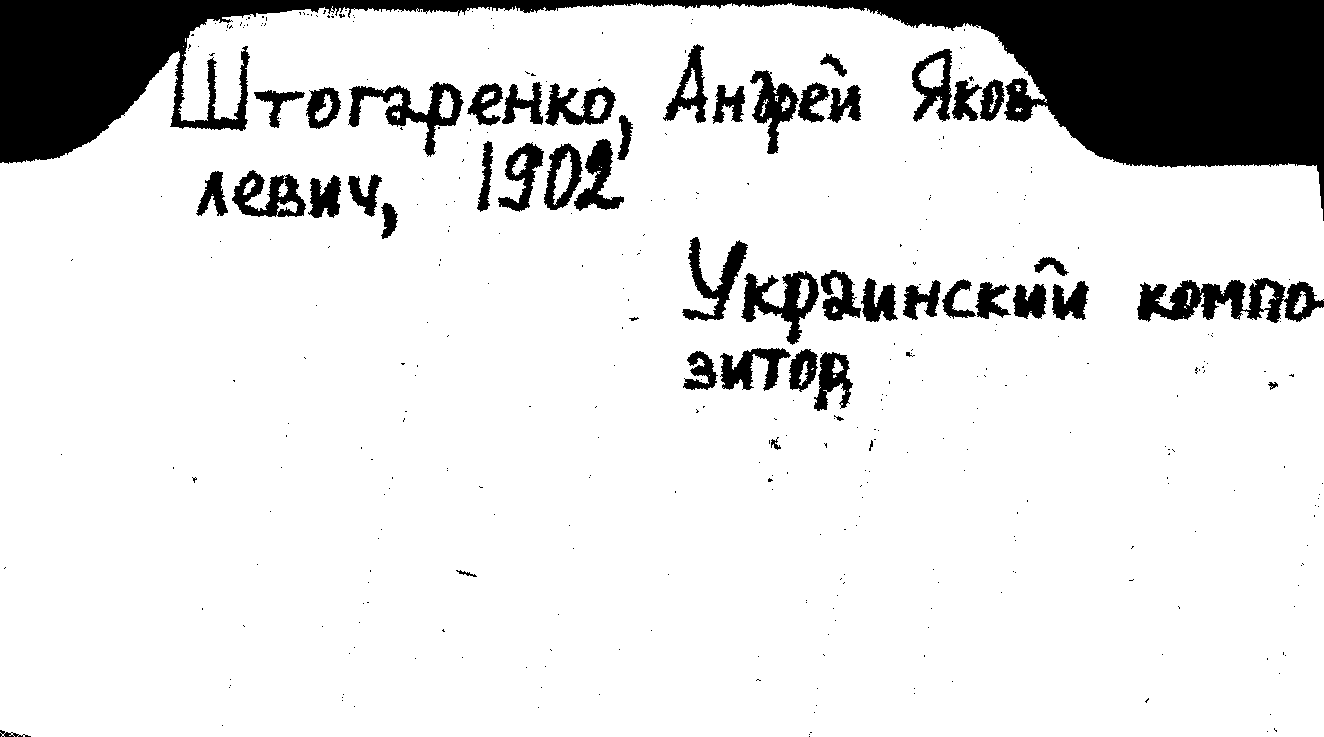 Штогаренко, Андрей Яков-
левич, 1902
Украинский компо-
зитор,